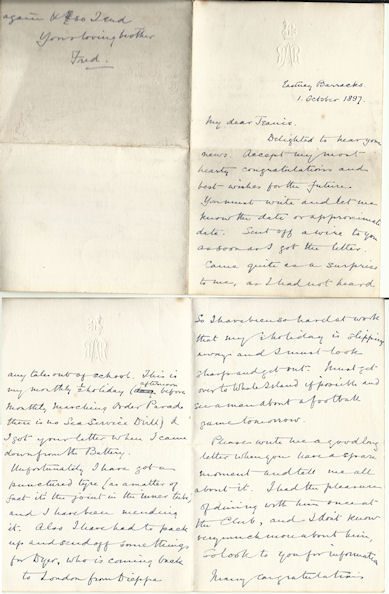 Eastney Barracks
1. October 1897.
My dear
Delighted to hear your
news. Accept my most
hearty congratulations and
best wishes for the future.
You must write and let me
know the date or approximate
date. Sent off a wire to you
as soon as I got the letter.
Came quite as a surprise
to me, as I had not heard
any tales out of school. This is
my monthly ½ holiday (afternoon before
Monthly Marching Order Parade
there is no Sea Service Drill) &
I got your letter when I came
down from the Battery.
Unfortunately I have got a
punctured tyre (as a matter of
fact it's the joint in the inner tube)
and I have been mending
it. Also I have had to pack
up and send off some things
for Dyer, who is coming back
to London from Dieppe
So I have been so hard at work
that my ½ holiday is slipping
away and I must look
sharp and get out. Must get
over to Whale Island if possible and
see a man about a football
game tomorrow.
Please write me a good long
letter when you have a spare
moment and tell me all
about it. I had the pleasure
of dining with him once at
the Club, and I don't know
very much more about him,
so look to you for information
Many congratulations
again & so I end
Your loving brother
Fred.